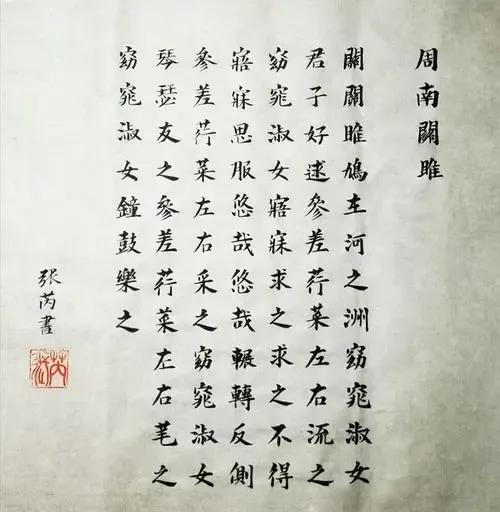 周南關雎
關關雎鳩在河之洲窈窕淑女
君子好逑參差荇菜左右流之
窈窕淑女寤寐求之求之不得
寤寐思服悠哉悠哉輾轉反側
參差荇菜左右采之窈窕淑女
琴瑟友之參差荇菜左右芼之
窈窕淑女鐘鼓樂之
張芮書